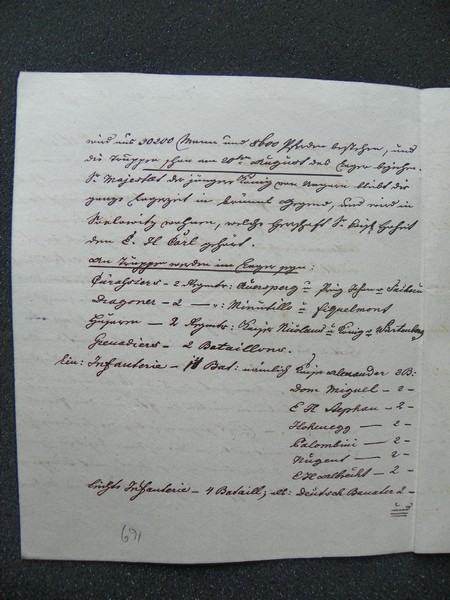 wird aus 30200 Mann und 8600 Pferden bestehen, und
die Truppen schon am 20ten August das Lager beziehen.
Sr Majestät der jüngere König von Ungarn bleibt die
ganze Lagerzeit in Brünns Gegend, und wird in
Selowitz wohnen, welche Herrschaft Sr Kais Hoheit
dem E. H. Carl gehört.
An Truppen werden im Lager seyn:
Cürassiers – 2 Regmtr: Auersperg u Prinz Johan v Sachsen
Dragoner – 2 — ": Minutillo u Fiquelmont
Husaren — 2 Regmtr: Kaiser Nicolaus u König v Würtenberg
Grenadiers – 2 Bataillons.
Lin: Infanterie – 14 Bat: nämlich Kaiser Alexander 2 B:
Dom Miguel – 2 –
E H Stephan – 2 –
Hohenegg — 2 –
Palombini — 2 –
Nugent — 2 –
E H Albrecht – 2 –
leichte Infanterie – 4 Bataill; als: Deutsch Banater 2 –
(69)